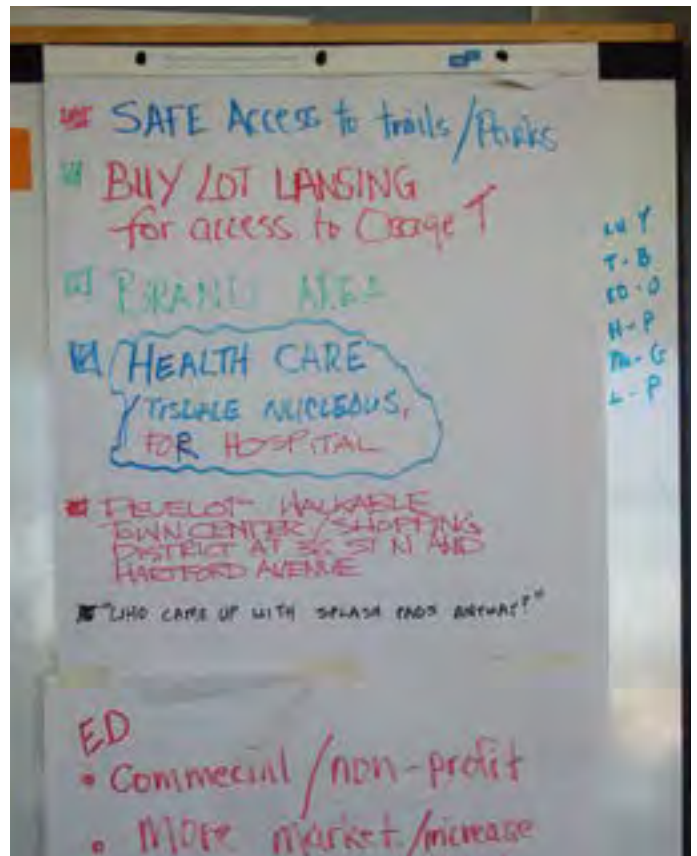 SAFE Access to trails/Parks
BUY LOT LANSING
for access to Osage T
BRAND AREA
HEALTH CARE
TISDALE NUCLEOUS,
FOR HOSPITAL
DEVELOP WALKABLE
TOWN CENTER/SHOPPING
DISTRICT AT 36 ST N AND
HARTFORD AVENUE
"WHO CAME UP WITH SPLASH PADS ANYWAY?"
LU Y
T-B
ED-O
H-P
L-P
ED
• Commecial/non-profit
• More market/increase